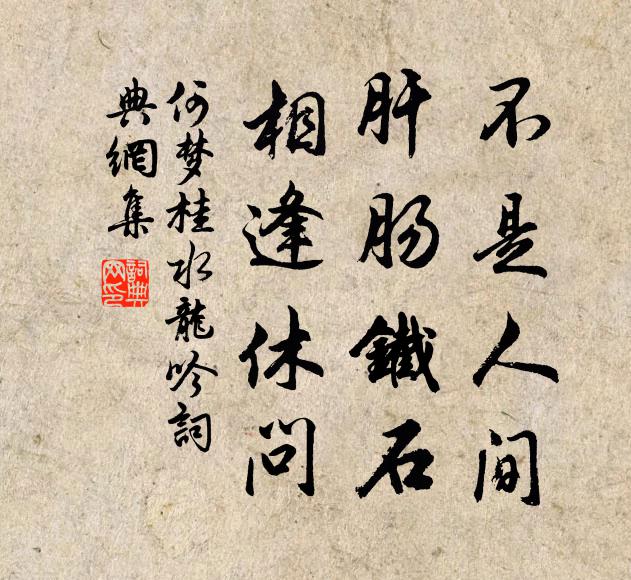 不是人间
肝肠鐵石
相逢休问
何梦桂水龍吟詞
典網集
詞典
网印